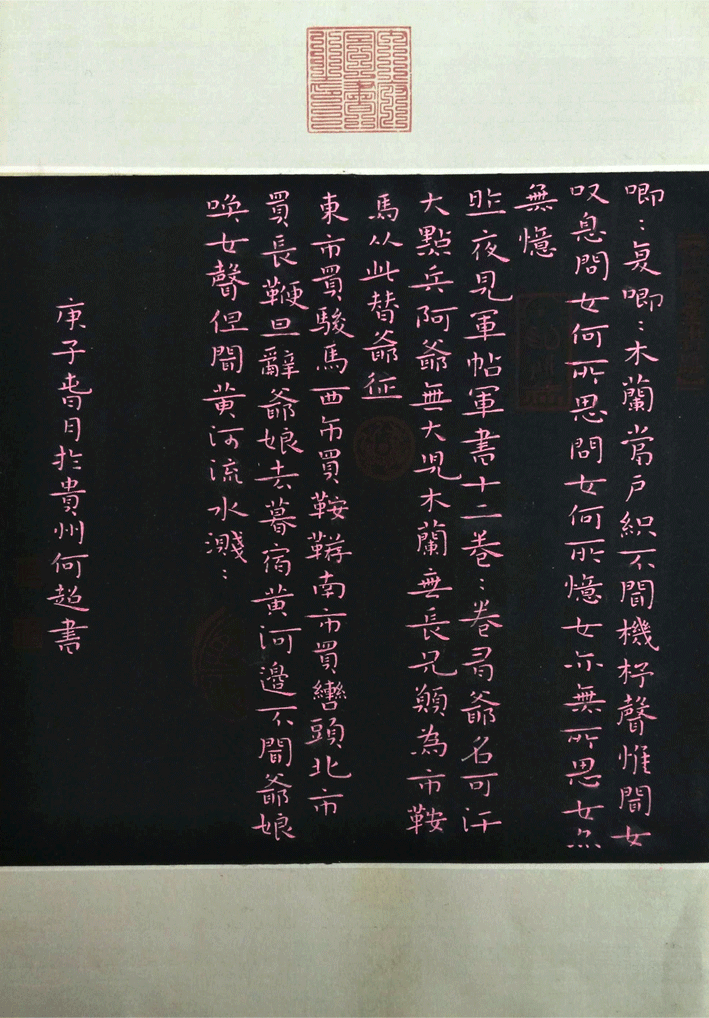 唧：复唧：木蘭當戶織不聞機杼聲惟聞女
叹息問女何所思問女何所憶女亦無所思女亦
無憶
昨夜見軍帖軍書十二卷：卷有爺名可汗
大點兵阿爺無大児木蘭無長兄願為市鞍
馬从此替爺征
東市買駿馬西市買鞍韉南市買轡頭北市
買長鞭旦辭爺娘去暮宿黃河邊不聞爺娘
喚女聲但聞黃河流水濺：
庚子春月於貴州何超書